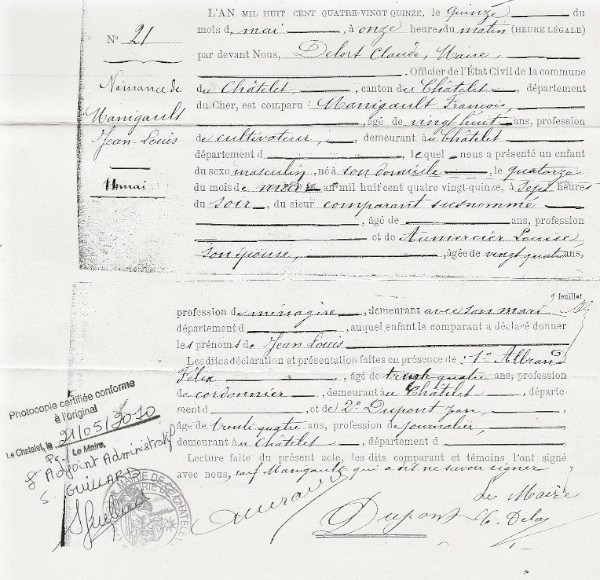 L'AN MIL HUIT CENT QUATRE-VINGT QUINZE, le quinze du
mois d mai, à onze heures du matin (HEURE LÉGALE)
par devant Nous, Delort Claude, Maire,
Officier de l'État Civil de la commune
du Châtelet, canton du Châtelet, département
du Cher, est comparu Manigault François,
âgé de vingt huit ans, profession
de cultivateur, demeurant au Châtelet
département d, lequel nous a présenté un enfant
du sexe masculin, né à son domicile, le quatorze
du mois de mai an mil huit cent quatre vingt-quinze, à sept heures
du soir, du sieur comparant susnommé
âgé de ans, profession
et de Aumercier Louise
son épouse, âgée de vingt quatre ans,
No 21
Naissance de
Manigault
Jean-Louis
14 mai
9e feuillet
profession de ménagère, demeurant avec son mari
département d, auquel enfant le comparant a déclaré donner
les prénoms de Jean Louis
Lesdites déclaration et présentation faites en présence de 1°
Félix, âgé de trente quatre ans, profession
de cordonnier, demeurant au Châtelet, départe-
ment d, et de 2° Dupont Jean,
âgé de trente quatre ans, profession de journalier,
demeurant au Châtelet, département d
Lecture faite du présent acte, les dits comparant et témoins l'ont signé
avec nous, sauf Manigault qui a dit ne savoir signer.
Le Maire
Dupont
C. Delort
Photocopie certifiée conforme
à l'original
Le Chatelet, le 21/05/2010
Le Maire,
L'Adjoint Administratif
S. GUILLARD
MAIRIE DE CHATELET